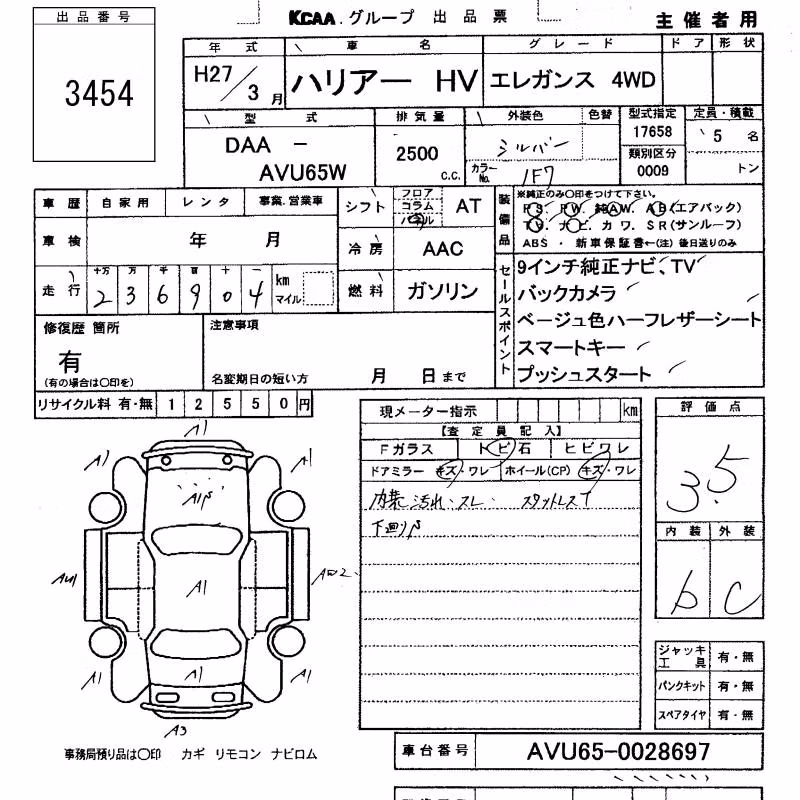 出品番号
3454
KCAA.グループ 出品票
主催者用
年式 車名 グレード ドア 形状
H27/3月 ハリアー HV エレガンス 4WD
型式 排気量 外装色 色替 型式指定 定員・積載
DAA - AVU65W
2500 c.c.
シルバー
カラーNo. 1F7
17658
類別区分
0009
5 名
トン
車歴 自家用 レンタ 事業.営業車
車検 年 月
走行 十万 万 千 百 十
236904 km マイル
シフト フロア コラム パネル AT
冷房 AAC
燃料 ガソリン
装備品 ※純正のみ○印をつけて下さい。
PS. PW. 純AW. AB(エアバッグ)
TV. ナビ. カワ. SR(サンルーフ)
ABS ・ 新車保証書←(注)後日送りのみ
セールスポイント
9インチ純正ナビ、TV
バックカメラ
ベージュ色ハーフレザーシート
スマートキー
プッシュスタート
修復歴 箇所
有
(有の場合は○印を)
注意事項
名変期日の短い方 月 日まで
リサイクル料 有・無 12550円
現メーター指示 km
【査定員記入】
Fガラス トビ石 ヒビワレ
ドアミラー キズ・ワレ ホイール(CP) キズ・ワレ
内装 汚れ・スレ スタットレスT
下廻りβ
評価点
3.5
内装 外装
b C
ジャッキ 工具 有・無
パンクキット 有・無
スペアタイヤ 有・無
A1
A1 A1
A1β
AU1 A1 A1
A1 A1
A3
事務局預り品は○印 カギ リモコン ナビロム
車台番号 AVU65-0028697